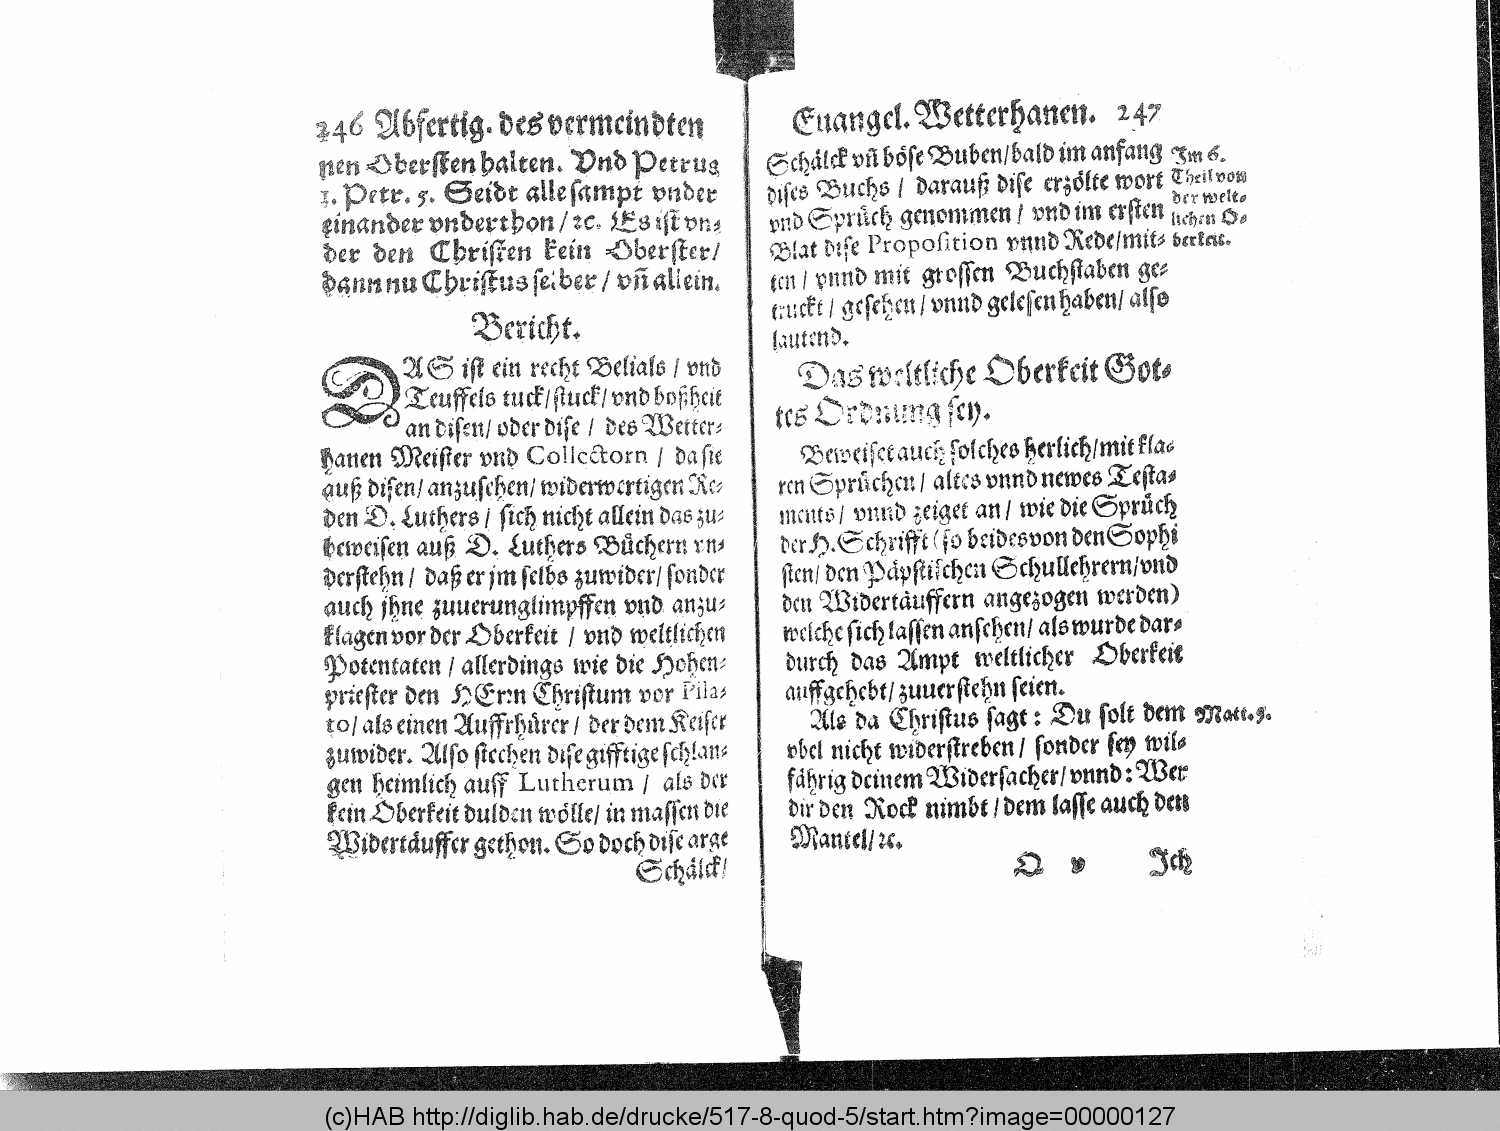 246 Abfertig. des vermeindten
nen Obersten halten. Vnd Petrus
1. Petr. 5. Seidt alle sampt vnder
einander vnderthon / ꝛc. Es ist vn⸗
der den Christen kein Oberster /
dann nu Christus selber / vñ allein.
Bericht.
DAS ist ein recht Belials / vnd
Teuffels tuck / stuck / vnd boßheit
an disen / oder dise / des Wetter⸗
hanen Meister vnd Collectorn / da sie
auß disen / anzusehen / widerwertigen Re⸗
den D. Luthers / sich nicht allein das zu⸗
beweisen auß D. Luthers Bůchern vn⸗
derstehn / daß er jm selbs zuwider / sonder
auch jhne zuuerunglimpffen vnd anzu⸗
klagen vor der Oberkeit / vnd weltlichen
Potentaten / allerdings wie die Hohen⸗
priester den HErrn Christum vor Pila⸗
to / als einen Auffrhůrer / der dem Keiser
zuwider. Also stechen dise gifftige schlan⸗
gen heimlich auff Lutherum / als der
kein Oberkeit dulden wölle / in massen die
Widertäuffer gethon. So doch dise arge
Schälck /
Euangel. Wetterhanen. 247
Schälck vñ böse Buben / bald im anfang
dises Buchs / darauß dise erzölte wort
vnd Sprůch genommen / vnd im ersten
Blat dise Proposition vnnd Rede / mit⸗
ten / vnnd mit grossen Buchstaben ge⸗
truckt / gesehen / vnnd gelesen haben / also
lautend.
Im 6.
Theil von
der welt⸗
lichen O⸗
berkeit.
Das weltliche Oberkeit Got⸗
tes Ordnung sey.
Beweiset auch solches herlich / mit kla⸗
ren Sprůchen / altes vnnd newes Testa⸗
ments / vnnd zeiget an / wie die Sprůch
der H. Schrifft (so beides von den Sophi
sten / den Päpstischen Schullehrern / vnd
den Widertäuffern angezogen werden)
welche sich lassen ansehen / als wurde dar⸗
durch das Ampt weltlicher Oberkeit
auffgehebt / zuuerstehn seien.
Als da Christus sagt : Du solt dem
vbel nicht widerstreben / sonder sey wil⸗
fährig deinem Widersacher / vnnd : Wer
dir den Rock nimbt / dem lasse auch den
Mantel / ꝛc.
Matt. 5.
Q v Ich
(c)HAB http://diglib.hab.de/drucke/517-8-quod-5/start.htm?image=00000127